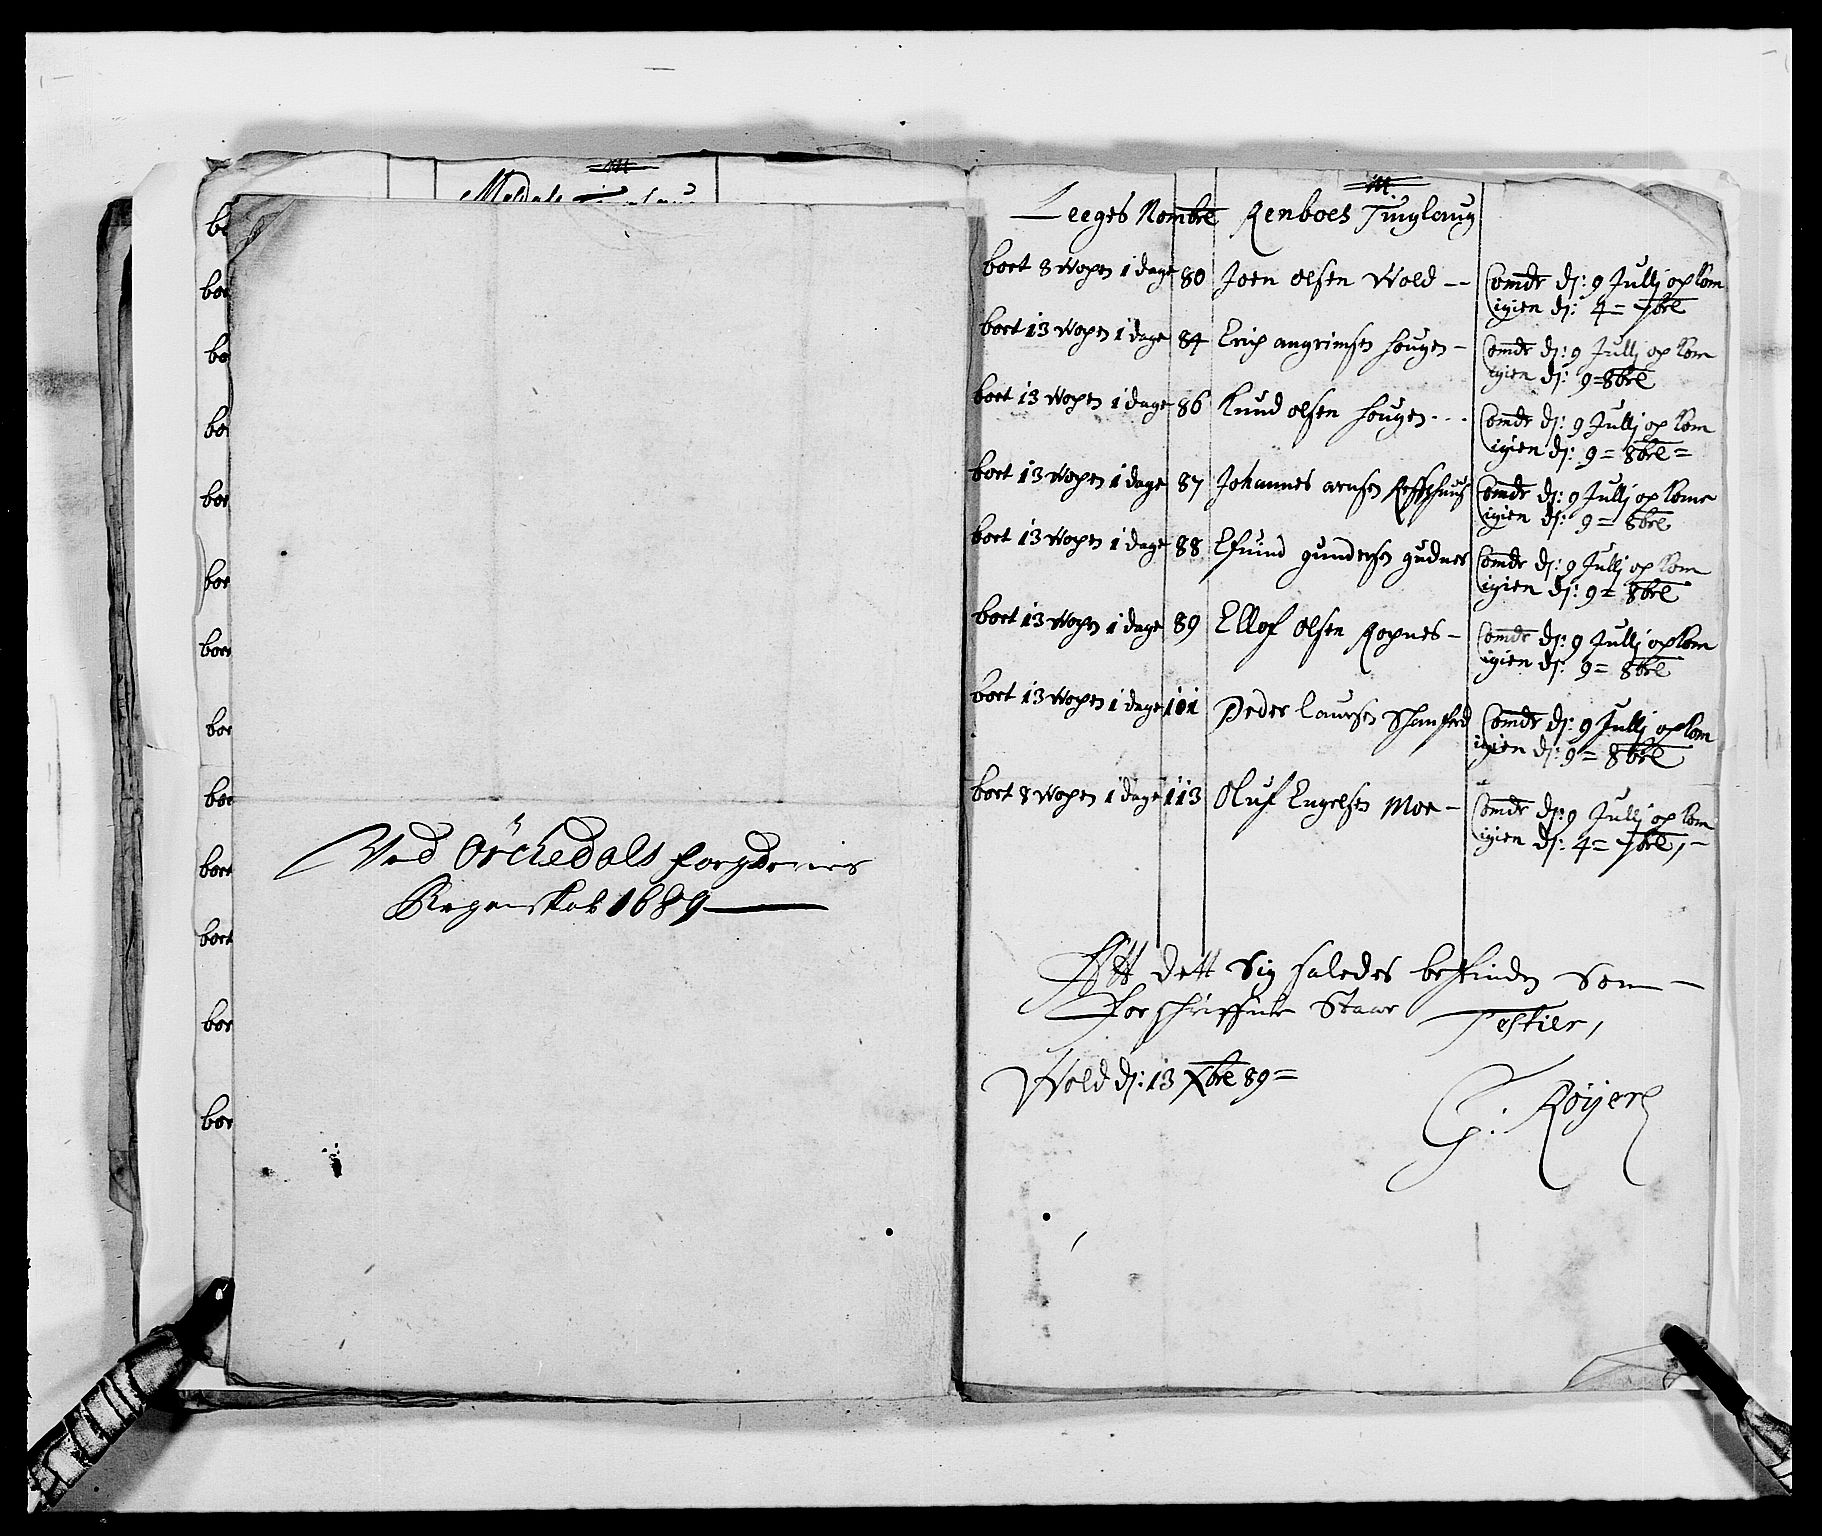 Meldals Tinglaug
Ved Örchedals fogderies
Regenskab 1689
Leeges Nombre Renboes Tinglaug
bort 8 Wogen 1 dage 80 Joen olsen Wold Comdr dj: 9 Jullj op kom
igien dj: 4 = 7bre
bort 13 Wogen 1 dage 84 Erich angrimsen hougen Comdr dj: 9 Jullj op kom
igien dj: 9 = 8bre
bort 13 Wogen 1 dage 86 Knud olsen hougen Comdr dj: 9 Jullj op kom
igien dj: 9 = 8bre =
bort 13 Wogen 1 dage 87 Johannes arnsen Comdr dj: 9 Jullj op kome
igien dj: 9 = 8bre
bort 13 Wogen 1 dage 88 Efuind gundersen gudnes Comdr dj: 9 Jullj op kom
igien dj: 9 = 8bre
bort 13 Wogen 1 dage 89 Ellof olsen Rognes Comdr dj: 9 Jullj op kom
igien dj: 9 = 8bre
bort 13 Wogen 1 dage 101 Peder laursen Comdr dj: 9 Jullj op kom
igien dj: 9 = 8bre
bort 8 Wogen 1 dage 113 Oluf Engelsen Moe Comdr dj: 9 Jullj op kom
igien dj: 4 = 7bre,
Att dett Sig saledes befinder Som
for schriffuit Staar Testier,
Wold dj: 13 Xbre 89 =
G: Röyer